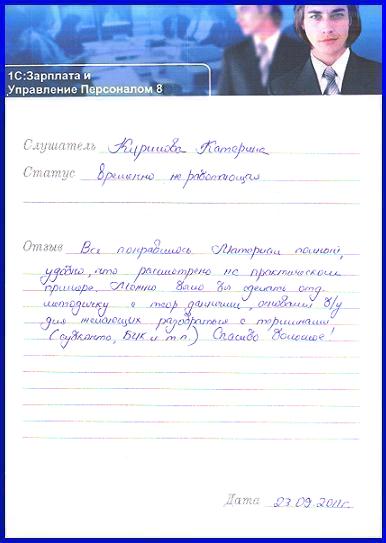 1С:Зарплата и
Управление Персоналом 8
Слушатель Куришова Катерина
Статус временно неработающая
Отзыв Все понравилось Материал полный,
удобно, что рассмотрено на практическом
примере. Можно было бы сделать отд.
методичку с теор данными, основами б/у
для желающих разобраться с терминами
(субконто, БИК и т.п.) Спасибо большое!
Дата 23.09.2011г.